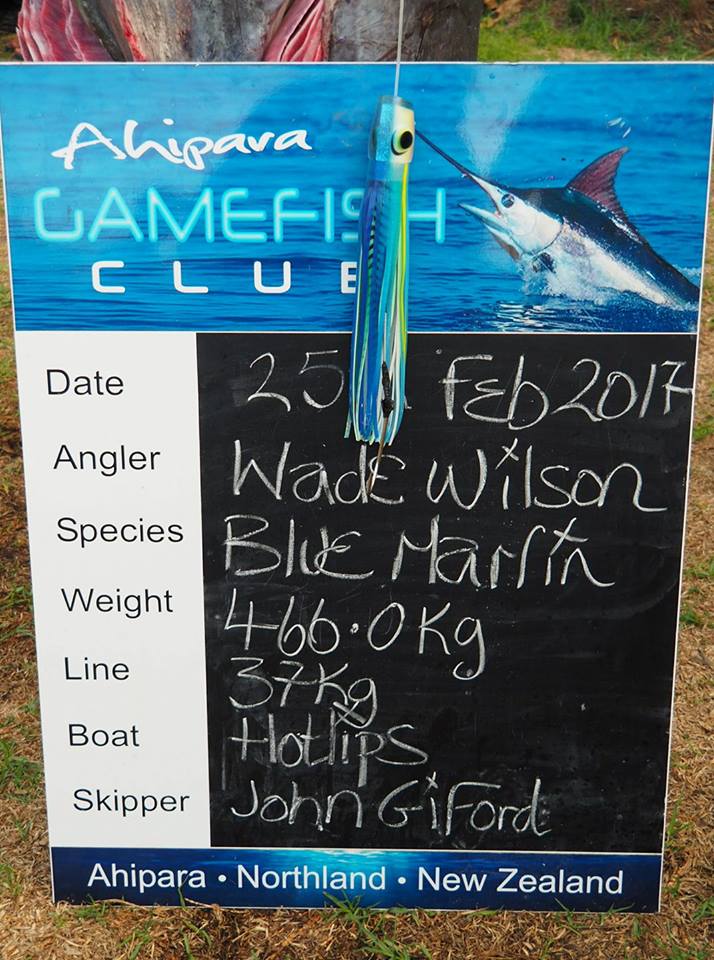 Ahipara
GAMEFISH
CLUB
Date 25 Feb 2017
Angler Wade Wilson
Species Blue Marlin
Weight 466.0Kg
Line 37Kg
Boat Hotlips
Skipper John Giford
Ahipara • Northland • New Zealand